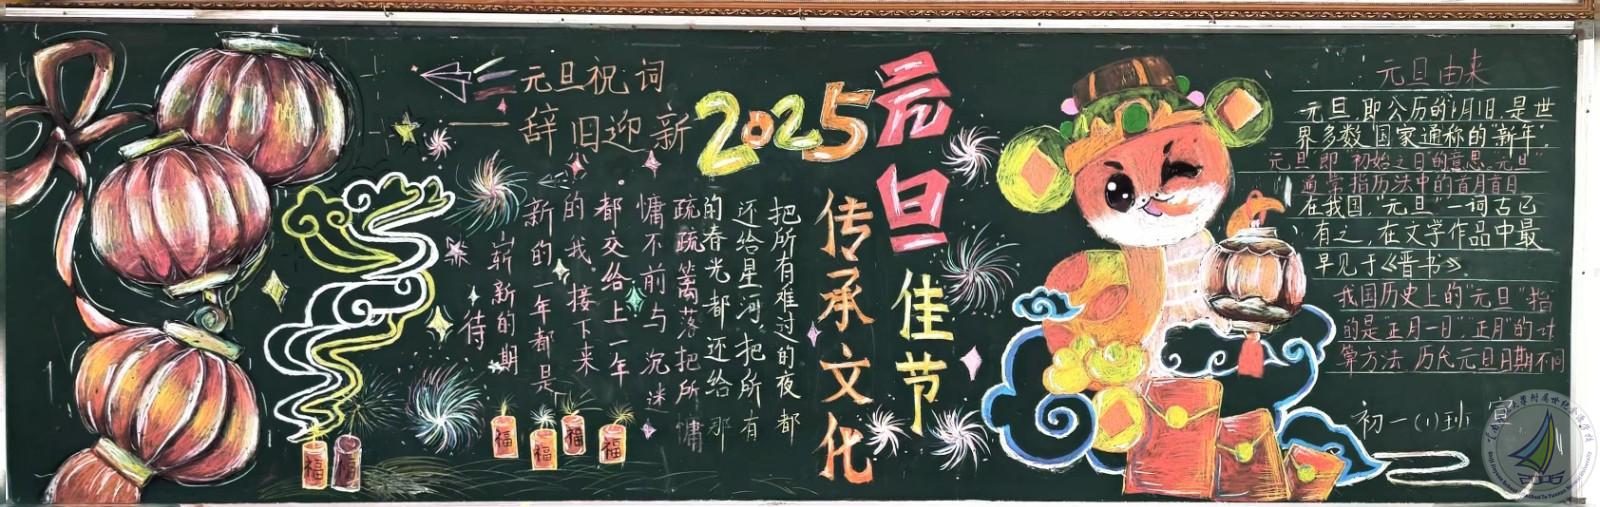 元旦祝词
——辞旧迎新
2025
元旦佳节
传承文化
把所有难过的夜都
还给星河,把所有
的春光都还给那
疏疏篱落把所慵
慵不前与沉迷
都交给上一年
的我.接下来
新的一年都是
崭新的期
待
福
福
福
福
福
福
元旦由来
元旦,即公历的1月1日,是世
界多数国家通称的"新年".
元旦,即"初始之日"的意思."元旦"
通常指历法中的首月首日
在我国,"元旦"一词古已
有之,在文学作品中最
早见于《晋书》.
我国历史上的"元旦"指
的是"正月一日","正月"的计
算方法 历代元旦日期不同
初一(1)班